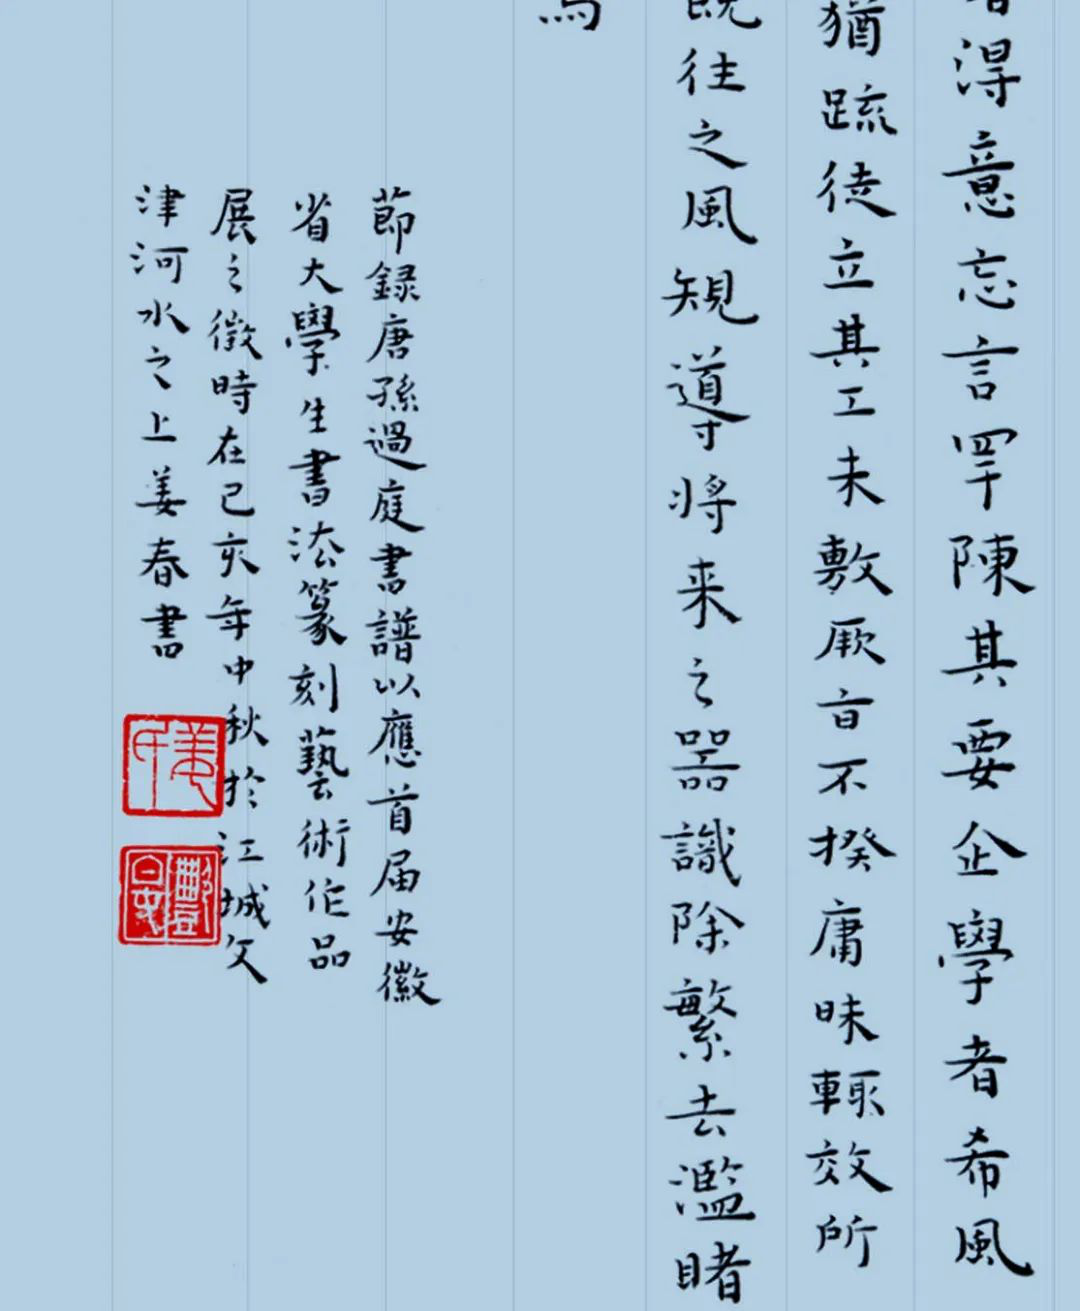 得意忘言罕陳其要企學者希風
猶疏徒立其工未敷厥旨不揆庸昧輒效所
既往之風規導將来之器識除繁去濫睹
焉
節録唐孫過庭書譜以應首届安徽
省大學生書法篆刻藝術作品
展之徵時在己亥年中秋於江城文
津河水之上姜春書